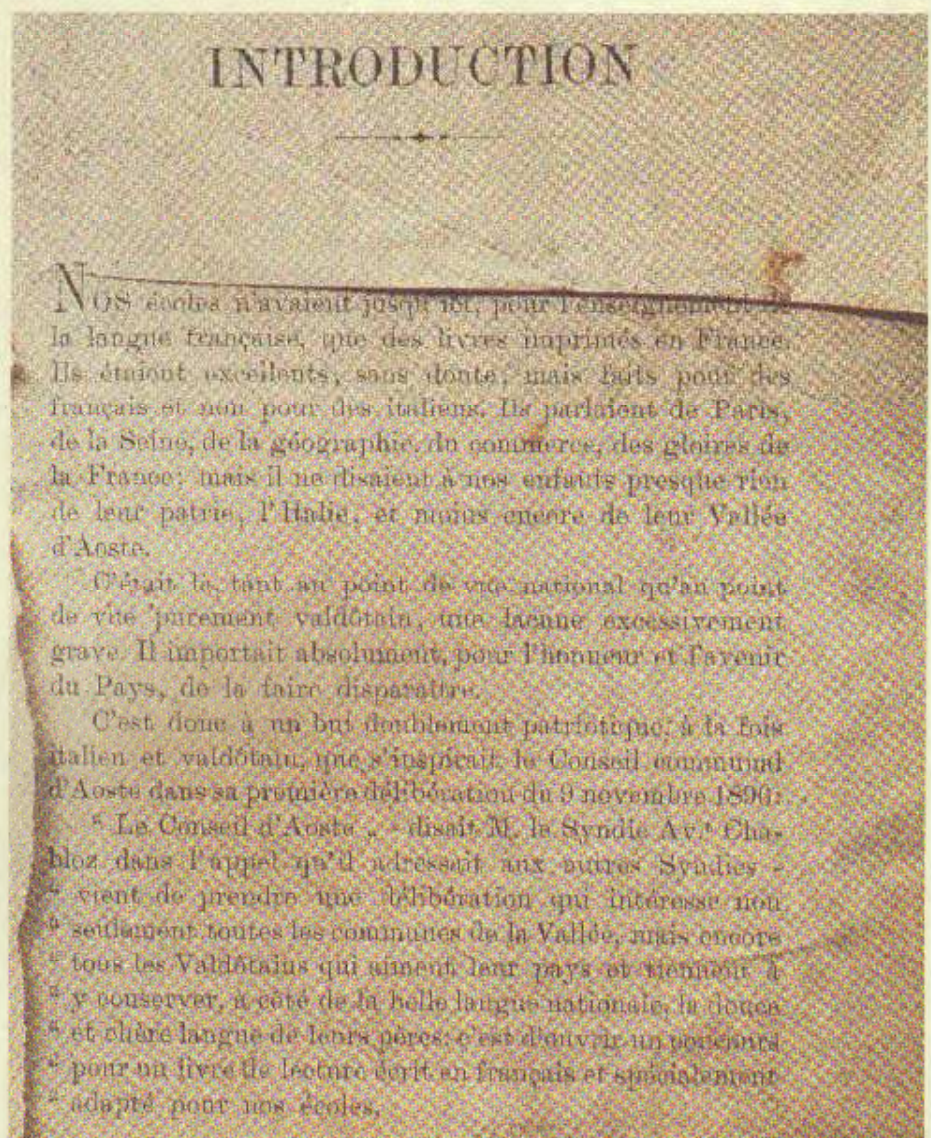 INTRODUCTION
NOS écoles n'avaient jusqu'ici, pour l'enseignement de
la langue française, que des livres imprimés en France.
Ils étaient excellents, sans doute, mais faits pour des
français et non pour des italiens. Ils parlaient de Paris,
de la Seine, de la géographie, du commerce, des gloires de
la France; mais il ne disaient à nos enfants presque rien
de leur patrie, l'Italie, et moins encore de leur Vallée
d'Aoste.
C'était là, tant au point de vue national qu'au point
de vue purement valdôtain, une lacune excessivement
grave. Il importait absolument, pour l'honneur et l'avenir
du Pays, de la faire disparaître.
C'est donc à un but doublement patriotique, à la fois
italien et valdôtain, que s'inspirait le Conseil communal
d'Aoste dans sa première délibération du 9 novembre 1896:
" Le Conseil d'Aoste „ - disait M. le Syndic Av.t Cha-
bloz dans l'appel qu'il adressait aux autres Syndics -
" vient de prendre une délibération qui intéresse non
" seulement toutes les communes de la Vallée, mais encore
" tous les Valdôtains qui aiment leur pays et tiennent à
" y conserver, à côté de la belle langue nationale, la douce
" et chère langue de leurs pères: c'est d'ouvrir un concours
" pour un livre de lecture écrit en français et spécialement
" adapté pour nos écoles.